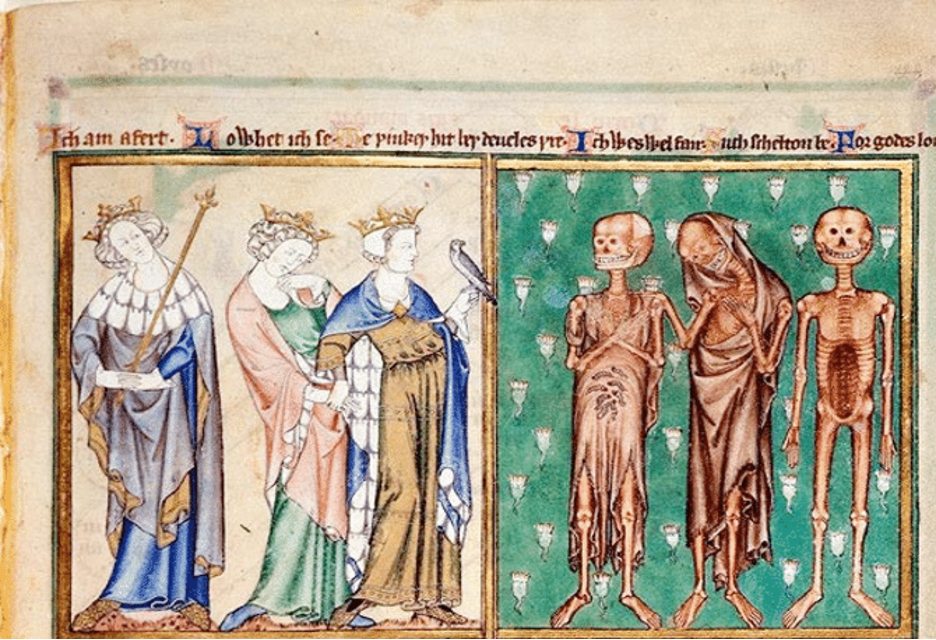 Ich am afert. Lo whet ich se. Me þinkeþ hit beþ deueles þre. Ich wes wel fair. Such scheltou be. For godes lou